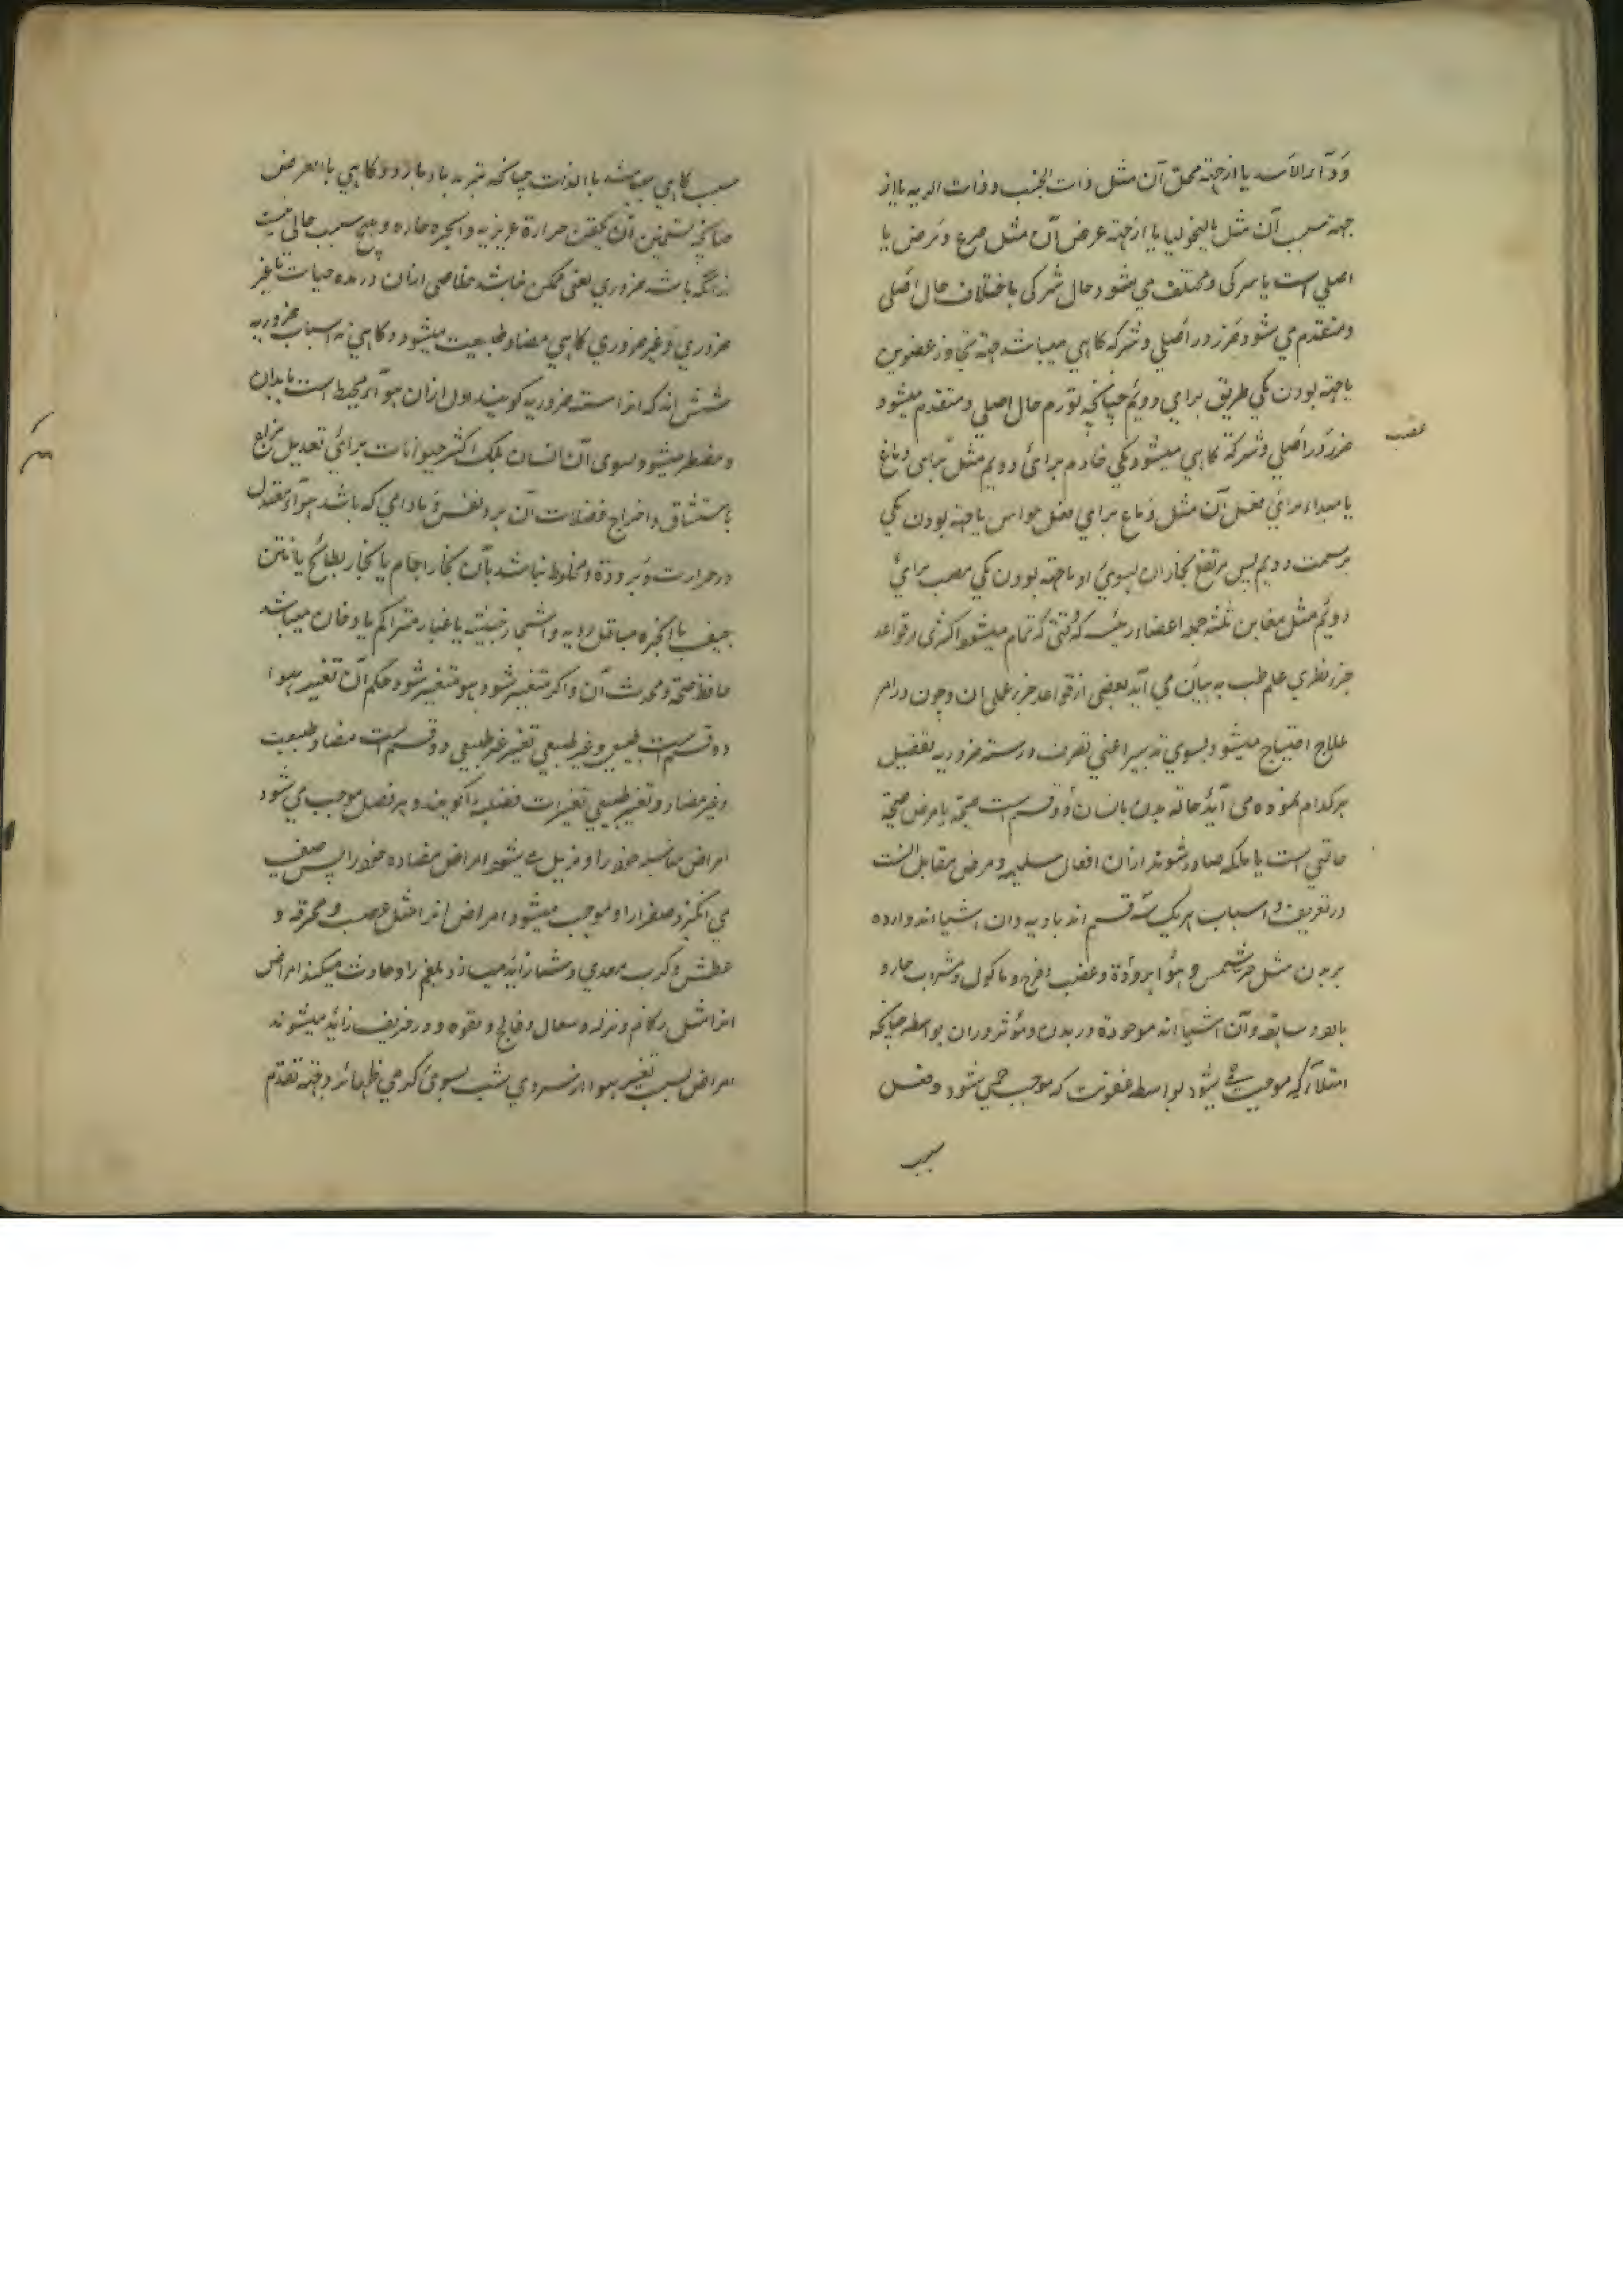 وداء الاسد یا از جهته محل آن مثل ذات الجنب و ذات الریه یا از
جهته سبب آن مثل مالیخولیا یا از جهته عرض آن مثل صرع و مرض یا
اصلی است یا شرکی و مختلف می شود حال شرکی باختلاف حال اصلی
و متقدم می شود ضرر در اصلی و شرکه کاهی میباشد جهته تجاوز عضوین
یا جهته بودن یکی طریق برای دویم چنانچه تورم حال اصلی و متقدم میشود
ضرر در اصلی و شرکة کاهی میشود یکی خادم برای دویم مثل برای دماغ
عصب
یا مبداء برای فعل آن مثل دماغ برای فعل حواس یا جهته بودن یکی
بر سمت دویم پس مرتفع بخار ان بسوی او یا جهته بودن یکی مصب برای
دویم مثل مغابن ثلثه جمله اعضاء رئیسه که تمام میشود اکثری از قواعد
جزء نظری علم طب به بیان می آید بعضی از قواعد جزء عملی ان و چون در امر
علاج احتیاج میشود بسوی تدبیر اعنی تصرف در سته ضروریه تفصیل
هر کدام نموده می آید حاله بدن بانسان دو قسم است صحة یا مرض صحة
حالتی است یا ملکه صادر شوند ازان افعال سلیمه و مرض مقابل انست
در تعریف و اسباب هر یک سه قسم اند بادیه و ان اشیا اند وارده
بر بدن مثل حر شمس و هوا برودة و غضب و فرح و ماکول و مشروب حار و
یابس و سابقه و آن اشیا اند موجودة در بدن و مؤثر در ان بواسطه چنانکه
امتلاء که موجب میشود بواسطه عفونت که موجب حمی شود و فعل
سبب
سبب کاهی میباشد با الذات چنانکه تبرید باد بارد و کاهی با العرض
چنانچه تسخین آن بحقن حرارة غریزیه و ابخره حاره و هیچ سبب خالی نیست
از انکه باشد ضروری یعنی ممکن نباشد خلاصی ازان در مده حیات یا غیر
ضروری و غیر ضروری کاهی مضاد طبیعت میشود و کاهی نه اسباب ضروریه
شش اند که انرا سته ضروریه کویند اول ازان هواء محیط است بابدان
و مضطر میشود بسوی آن انسان بلک اکثر حیوانات برای تعدیل مزاج
باستنشاق و اخراج فضلات آن برد نفس و مادامی که باشد هواء معتدل
در حرارت و برودة و مخلوط نباشد بآن بخار اجام یا بخار بطائح یا نتن
جیف یا ابخره مباقل ردیه و اشجار خبیثه یا غبار متراکم یا دخان میباشد
حافظ صحة و محدث آن و اکر متغیر شود هو متغیر شود حکم آن تغیر هوا
دو قسم است طبیعی و غیر طبیعی تغیر غیر طبیعی دو قسم است مضاد طبیعت
و غیر مضاد و تغیر طبیعی تغیرات فصلیه را کویند و هر فصل موجب می شود
امراض مناسبه خود را و مزیل میشود امراض مضاده خود را پس صیف
می انکیزد صفرا را و موجب میشود امراض انرا مثل غب و محرقه و
عطش و کرب معدی و شتا زائد میسازد بلغم را و حادث میکند امراض
انرا مثل زکام و نزله و سعال و فالج و لقوه و در خریف زائد میشوند
امراض بسبب تغیر هوا از سردی شب بسوی کرمی ظهائر و جهته تقدم